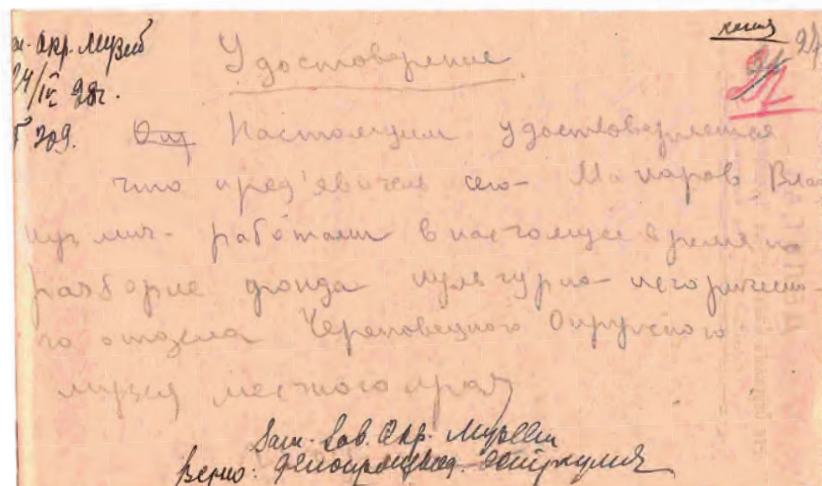 Окр. Музей
24/IV 28г.
209.
копия
24
Удостоверение
Настоящим удостоверяется
что пред'явитель сего - Макаров Вла
работает в настоящее время по
разборке фонда культурно-историческо-
го отдела Череповецкого Окружного
музея местного края
Зам. Зав. Окр. Музеем
Верно: Делопроизвод.